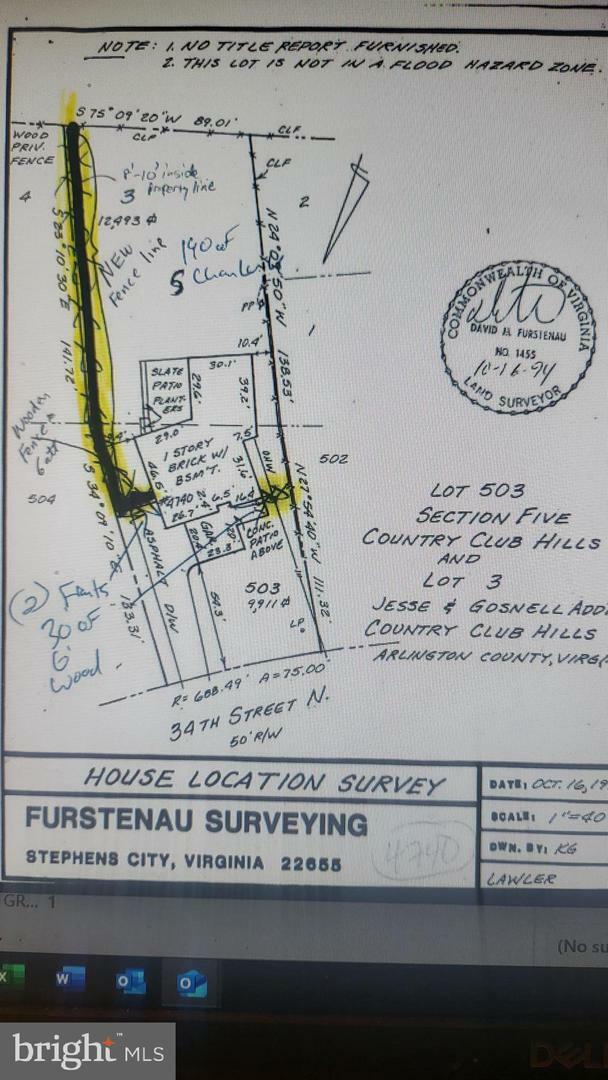 NOTE: 1. NO TITLE REPORT FURNISHED.
2. THIS LOT IS NOT IN A FLOOD HAZARD ZONE.
S 75° 09' 20" W 89.01'
CLF
CLF
WOOD
PRIV.
FENCE
CLF
8'-10' inside
Property line
4
3
2
12,493
NEW
Fence line
190 of
5
S 23° 10' 30" E 141.72'
N 24° 50" W 138.53'
PP
1
10.4'
30.1'
SLATE
PATIO
PLANT-
ERS
29.6'
39.2'
Wooden
Fence
6
29.0'
7.5'
1 STORY
BRICK W/
BSM'T.
46.5'
31.6'
OHW
502
504
#4740
2.4'
6.5'
16.4'
26.7'
N 27° 54' 40" W 111.32'
S 34° 09' 10" E 133.31'
ASPHALT
D/W
GAR.
20'
23.3'
CONC.
PATIO
ABOVE
503
9,911
59.3'
LP
(2) Fronts
30 of
6'
Wood
R= 688.49' A= 75.00'
34TH STREET N.
50' R/W
COMMONWEALTH OF VIRGINIA
DAVID H. FURSTENAU
NO. 1455
10-16-94
LAND SURVEYOR
LOT 503
SECTION FIVE
COUNTRY CLUB HILLS
AND
LOT 3
JESSE & GOSNELL ADD
COUNTRY CLUB HILLS
ARLINGTON COUNTY, VIRG
HOUSE LOCATION SURVEY
FURSTENAU SURVEYING
STEPHENS CITY, VIRGINIA 22655
4740
DATE: OCT. 16, 19
SCALE: 1"=40
DWN. BY: KG
LAWLER
GR... 1
(No su
bright MLS
DELL